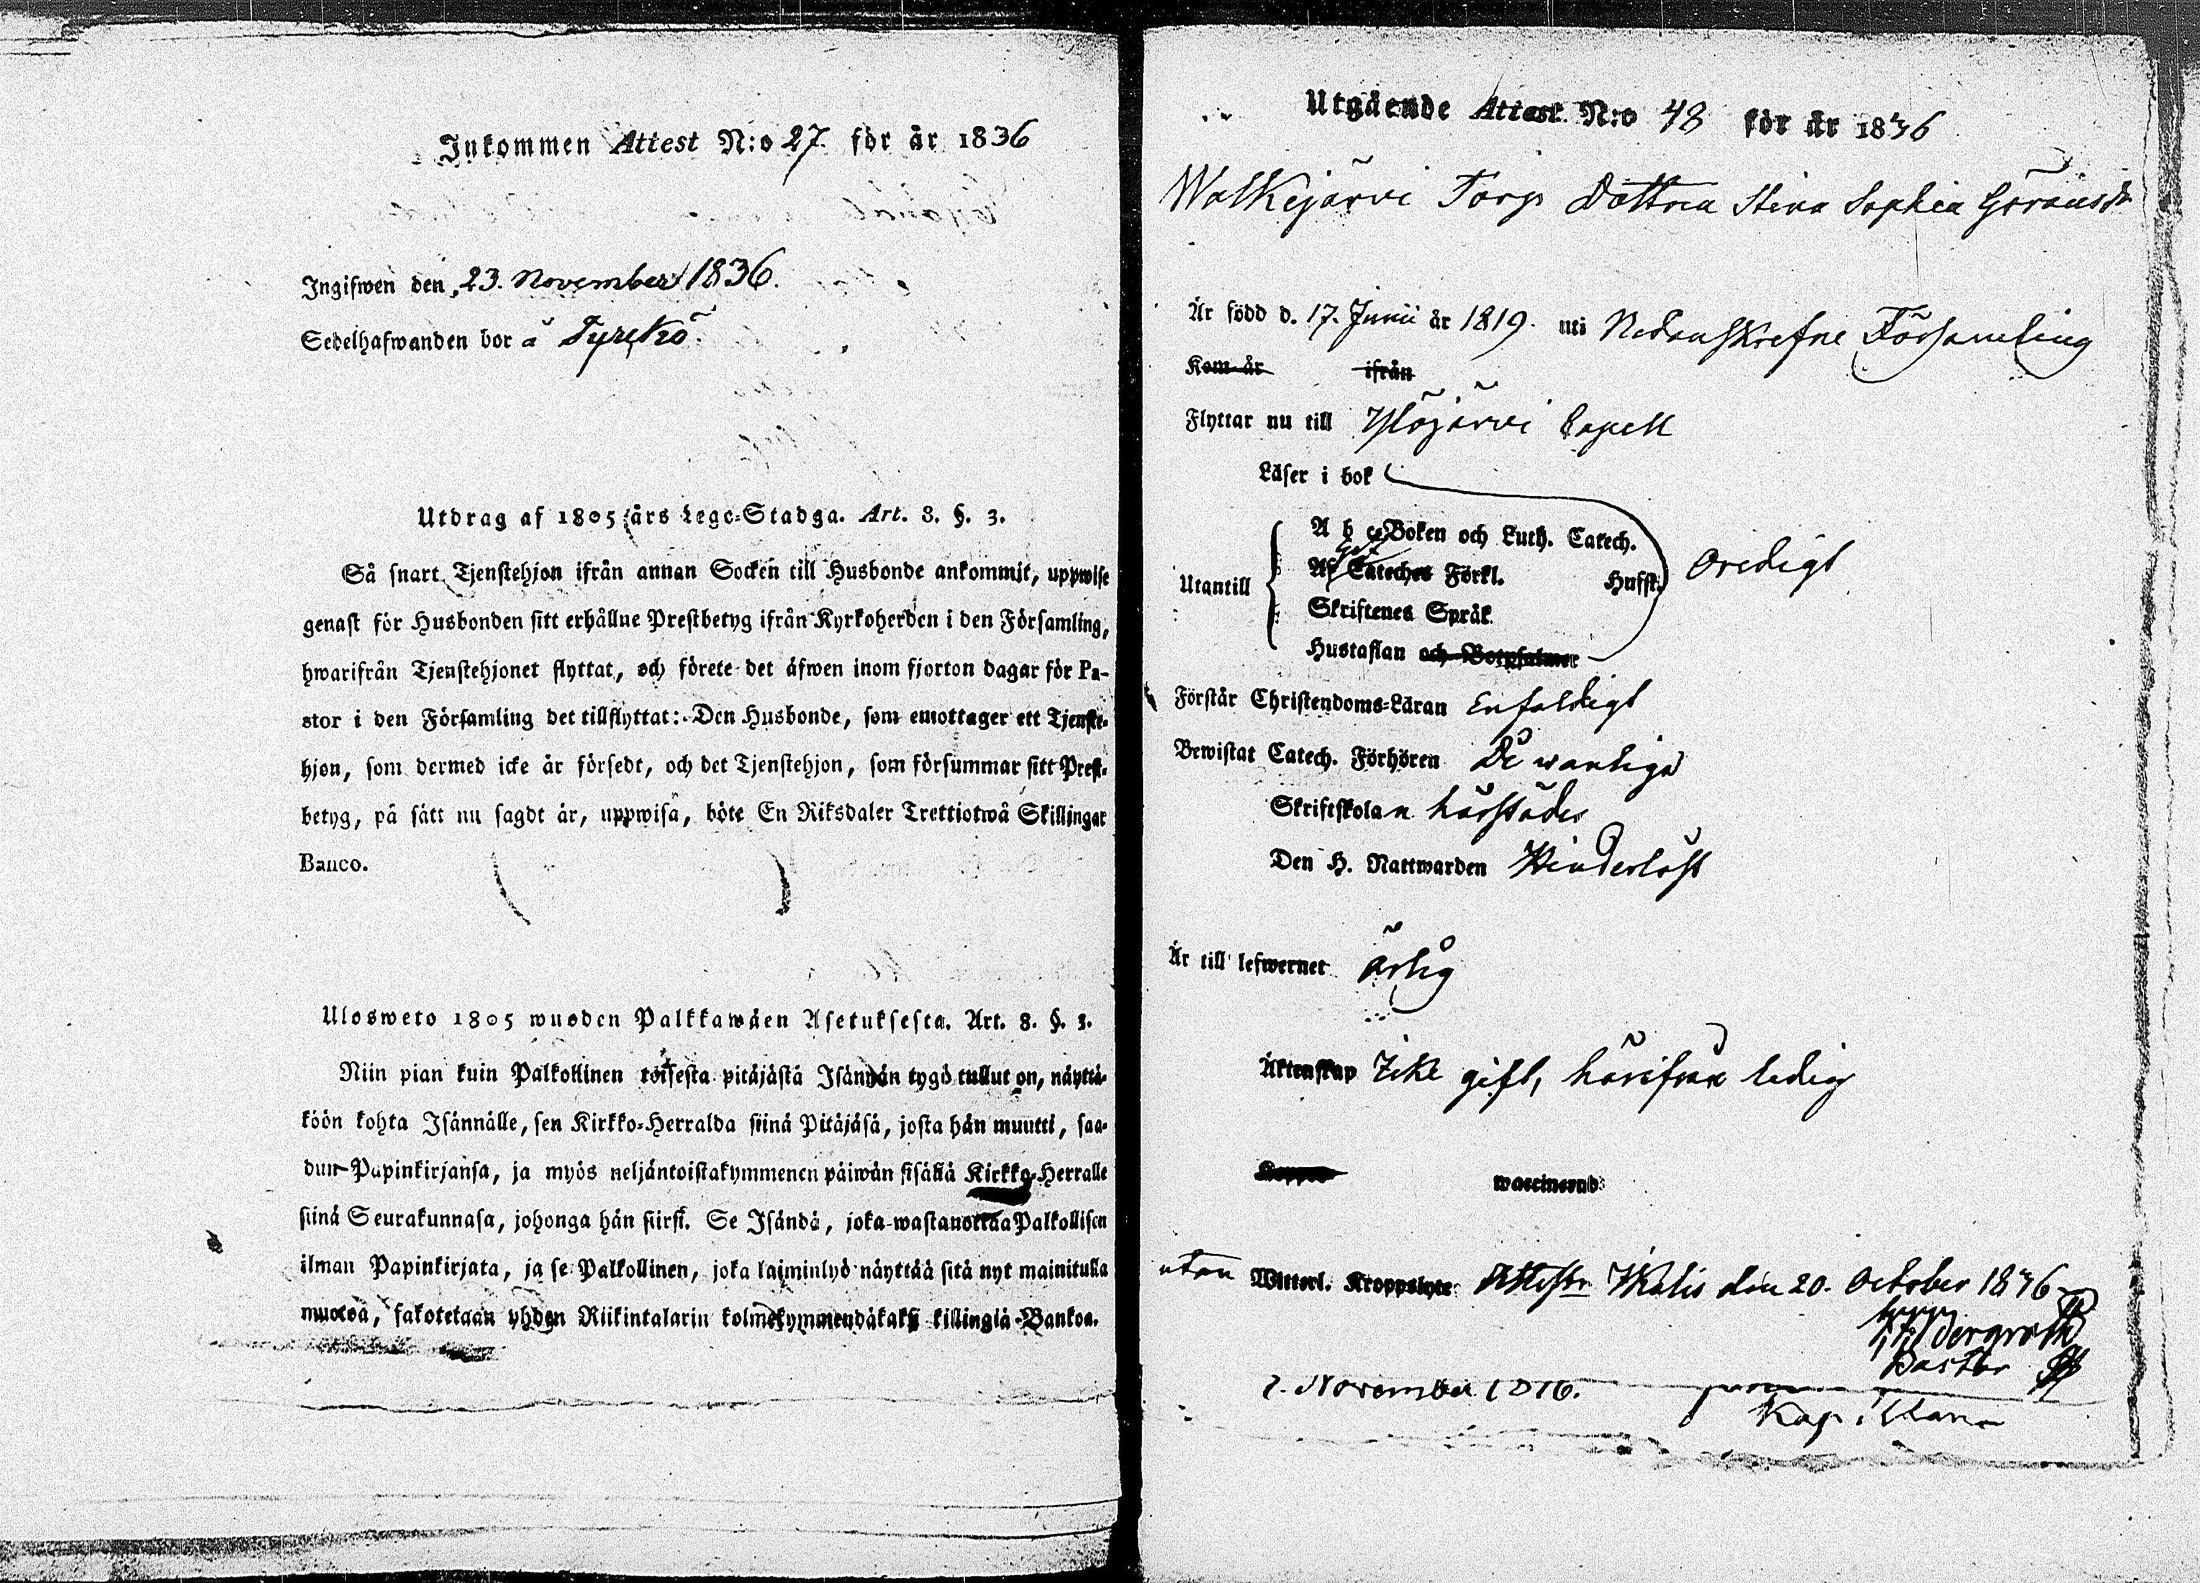 Inkommen Attest N:o 27. för år 1836
Ingifwen den 23. November 1836.
Sedelhafwanden bor å Tyrckö
Utdrag af 1805 års Lego-Stadga. Art. 8. §. 3.
Så snart Tjenstehjon ifrån annan Socken till Husbonde ankommit, uppwise
genast för Husbonden sitt erhållne Prestbetyg ifrån Kyrkoherden i den Församling,
hwarifrån Tjenstehjonet flyttat, och förete det äfwen inom fjorton dagar för Pa-
stor i den Församling det tillflyttat: Den Husbonde, som emottager ett Tjenste-
hjon, som dermed icke är försedt, och det Tjenstehjon, som försummar sitt Prest-
betyg, på sätt nu sagdt är, uppwisa, böte En Riksdaler Trettiotwå Skillingar
Banco.
Ulosweto 1805 wuoden Palkkawäen Asetuksesta. Art. 8. §. 3.
Niin pian kuin Palkollinen toisesta pitäjästä Isännän tygö tullut on, näyttä-
köön kohta Isännälle, sen Kirkko-Herralda siinä Pitäjäsä, josta hän muutti, saa-
dun Papinkirjansa, ja myös neljäntoistakymmenen päiwän sisällä Kirkko-Herralle
siinä Seurakunnasa, johonga hän siirsi. Se Isändä, joka wastanottaa Palkollisen
ilman Papinkirjata, ja se Palkollinen, joka laiminlyö näyttää sitä nyt mainitulla
muotoa, sakotetaan yhden Riikintalarin kolmekymmendäkaksi killingiä Bankoa.
Utgående Attest N:o 48 för år 1836
Walkejärwi Torp Dottren Stina Sophia Göransdr
Är född d. 17. Junii år 1819. uti Nedanskrefne Församling
Kom år ifrån
Flyttar nu till Ylöjärwi Capell
Läser i bok
A b c Boken och Luth. Catech.
Utantill Cateches Förkl. Hufst. oredigt
Skriftenes Språk
Hustaflan och Botpsalmer
Förstår Christendoms-Läran Enfaldigt
Bewistat Catech. Förhören De wanliga
Skriftskolan härstädes
Den H. Nattwarden Hinderlöst
Är till lefwernet ärlig
Äktenskap Icke gift, härifrån ledig
Koppor waccinerad
utan Witterl. Kroppslyte Attestr. Ikalis den 20. October 1836
Bergroth
Pastor
November
Kap